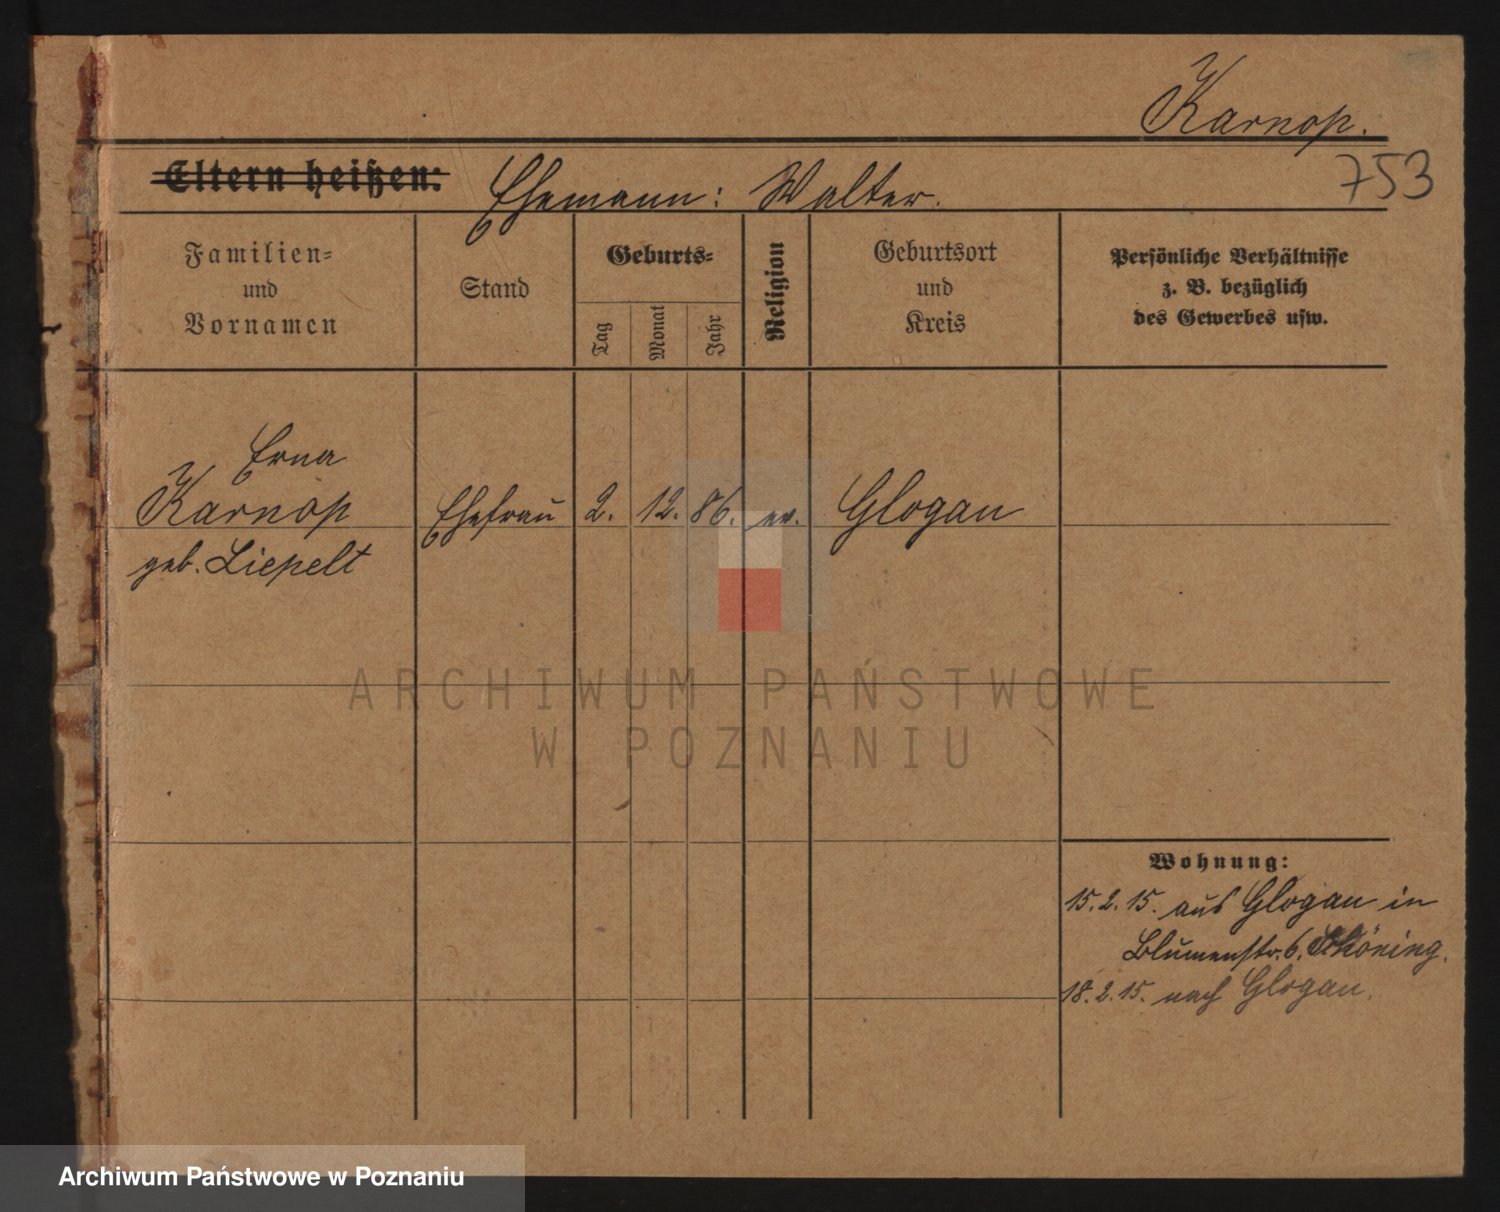 Karnop.
753
Eltern heißen: Ehemann: Walter.
Familien=
und
Vornamen
Stand
Geburts=
Tag
Monat
Jahr
Religion
Geburtsort
und
Kreis
Persönliche Verhältnisse
z. B. bezüglich
des Gewerbes usw.
Erna
Karnop
geb. Liepelt
Ehefrau
2.
12.
86.
ev.
Glogau
ARCHIWUM PAŃSTWOWE
W POZNANIU
Wohnung:
15.2.15. aus Glogau in
Blumenstr. 6.
18.2.15. nach Glogau.
Archiwum Państwowe w Poznaniu